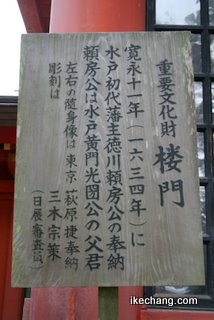 重要文化財 楼門
寛永十一年(一六三四年)に
水戸初代藩主徳川頼房公の奉納
頼房公は水戸黄門光圀公の父君
左右の随身像は東京 萩原捷奉納
彫刻は 三木宗策
(日展審査員)
ikechang.com